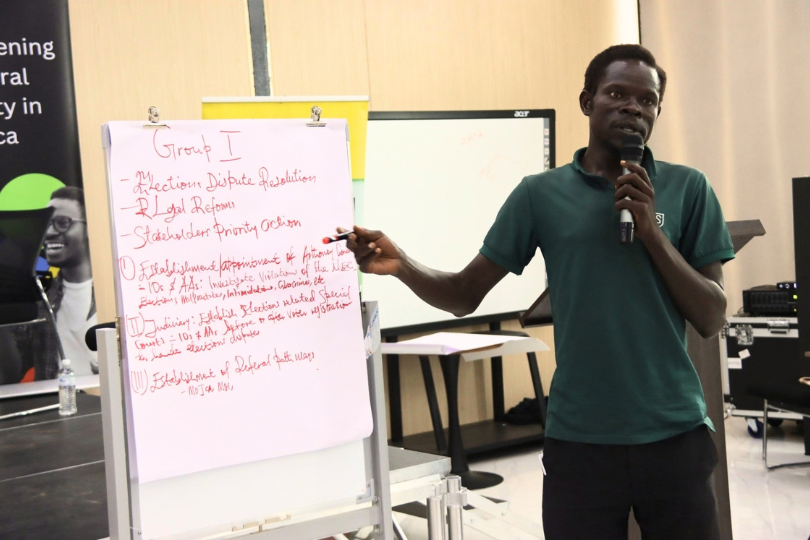 ening
ral
ty in
ca
acer
Group I
- Elections Dispute Resolution
- Legal Reforms
- Stakeholders Priority action
I Establishment/appointment of
= 10s & AAs: Investigate Violation of the
Elections Malpractices, Intimidations, etc
II Judiciary: Establish Election related Special
Courts = 10s & AAs before or after voter registration
to handle elections disputes
III Establishment of Referal Path ways